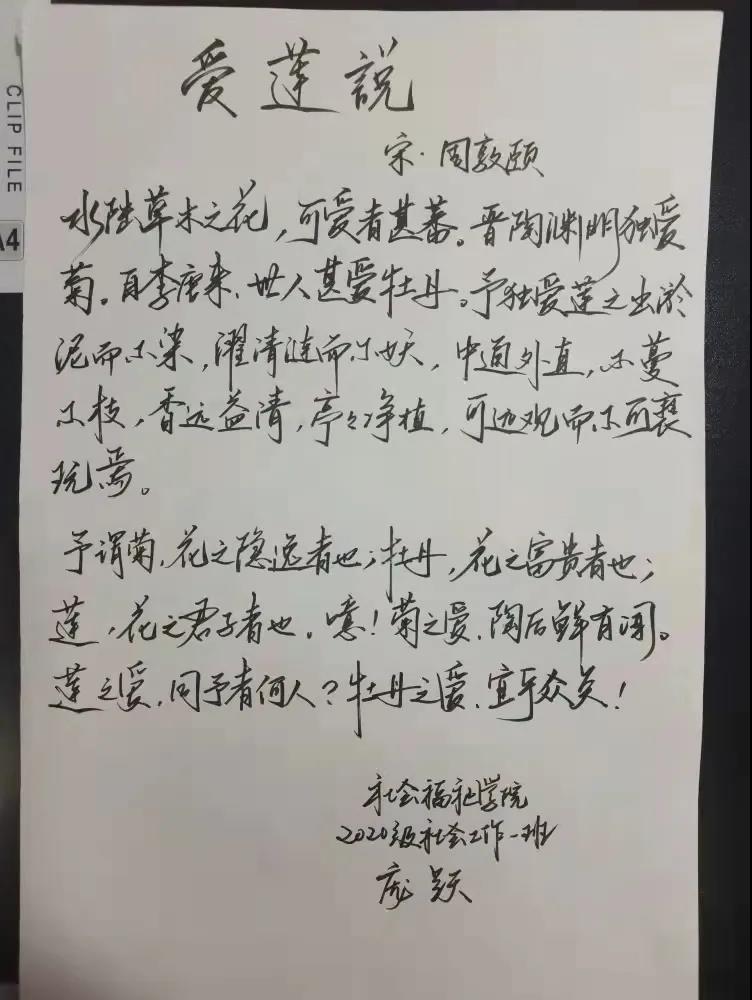 CLIP FILE
A4
爱莲說
宋·周敦颐
水陆草木之花,可爱者甚蕃。晋陶渊明独爱
菊。自李唐来、世人甚爱牡丹。予独爱莲之出淤
泥而不染,濯清涟而不妖,中通外直,不蔓
不枝,香远益清,亭々净植,可远观而不可亵
玩焉。
予谓菊,花之隐逸者也;牡丹,花之富贵者也;
莲,花之君子者也。噫!菊之爱、陶后鲜有闻。
莲之爱,同予者何人?牡丹之爱、宜乎众矣!
社会福祉学院
2020级社会工作一班
庞